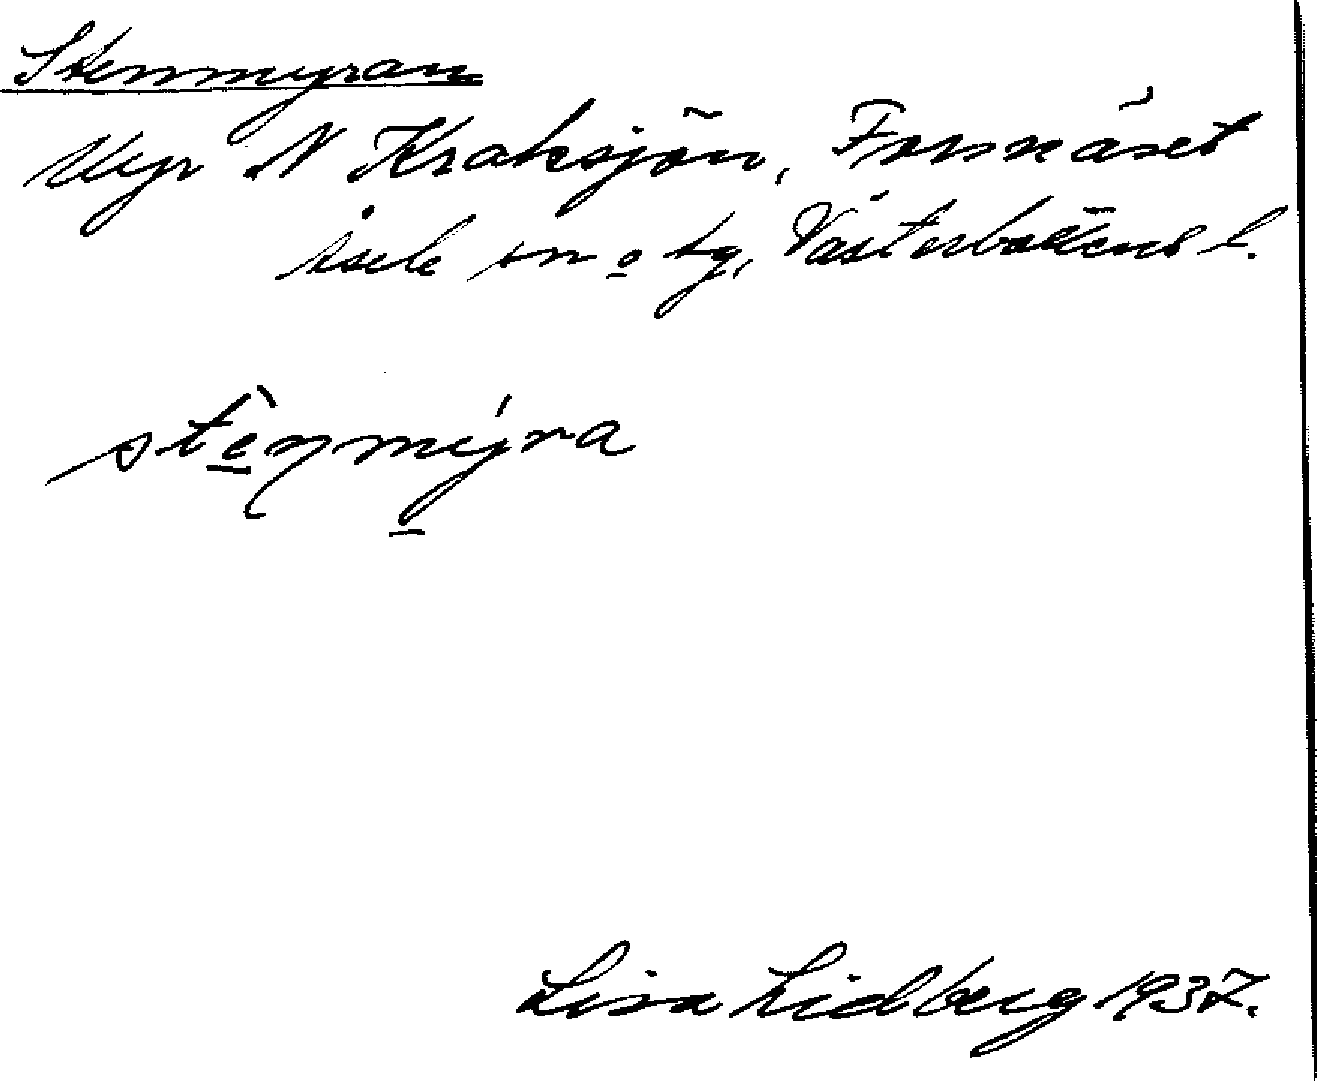 Stenmyran
Myr N Kraksjön, Forsnäset
Åsele sn o tg, Västerbottens l.
stenmyra
Lisa Lidberg 1937.